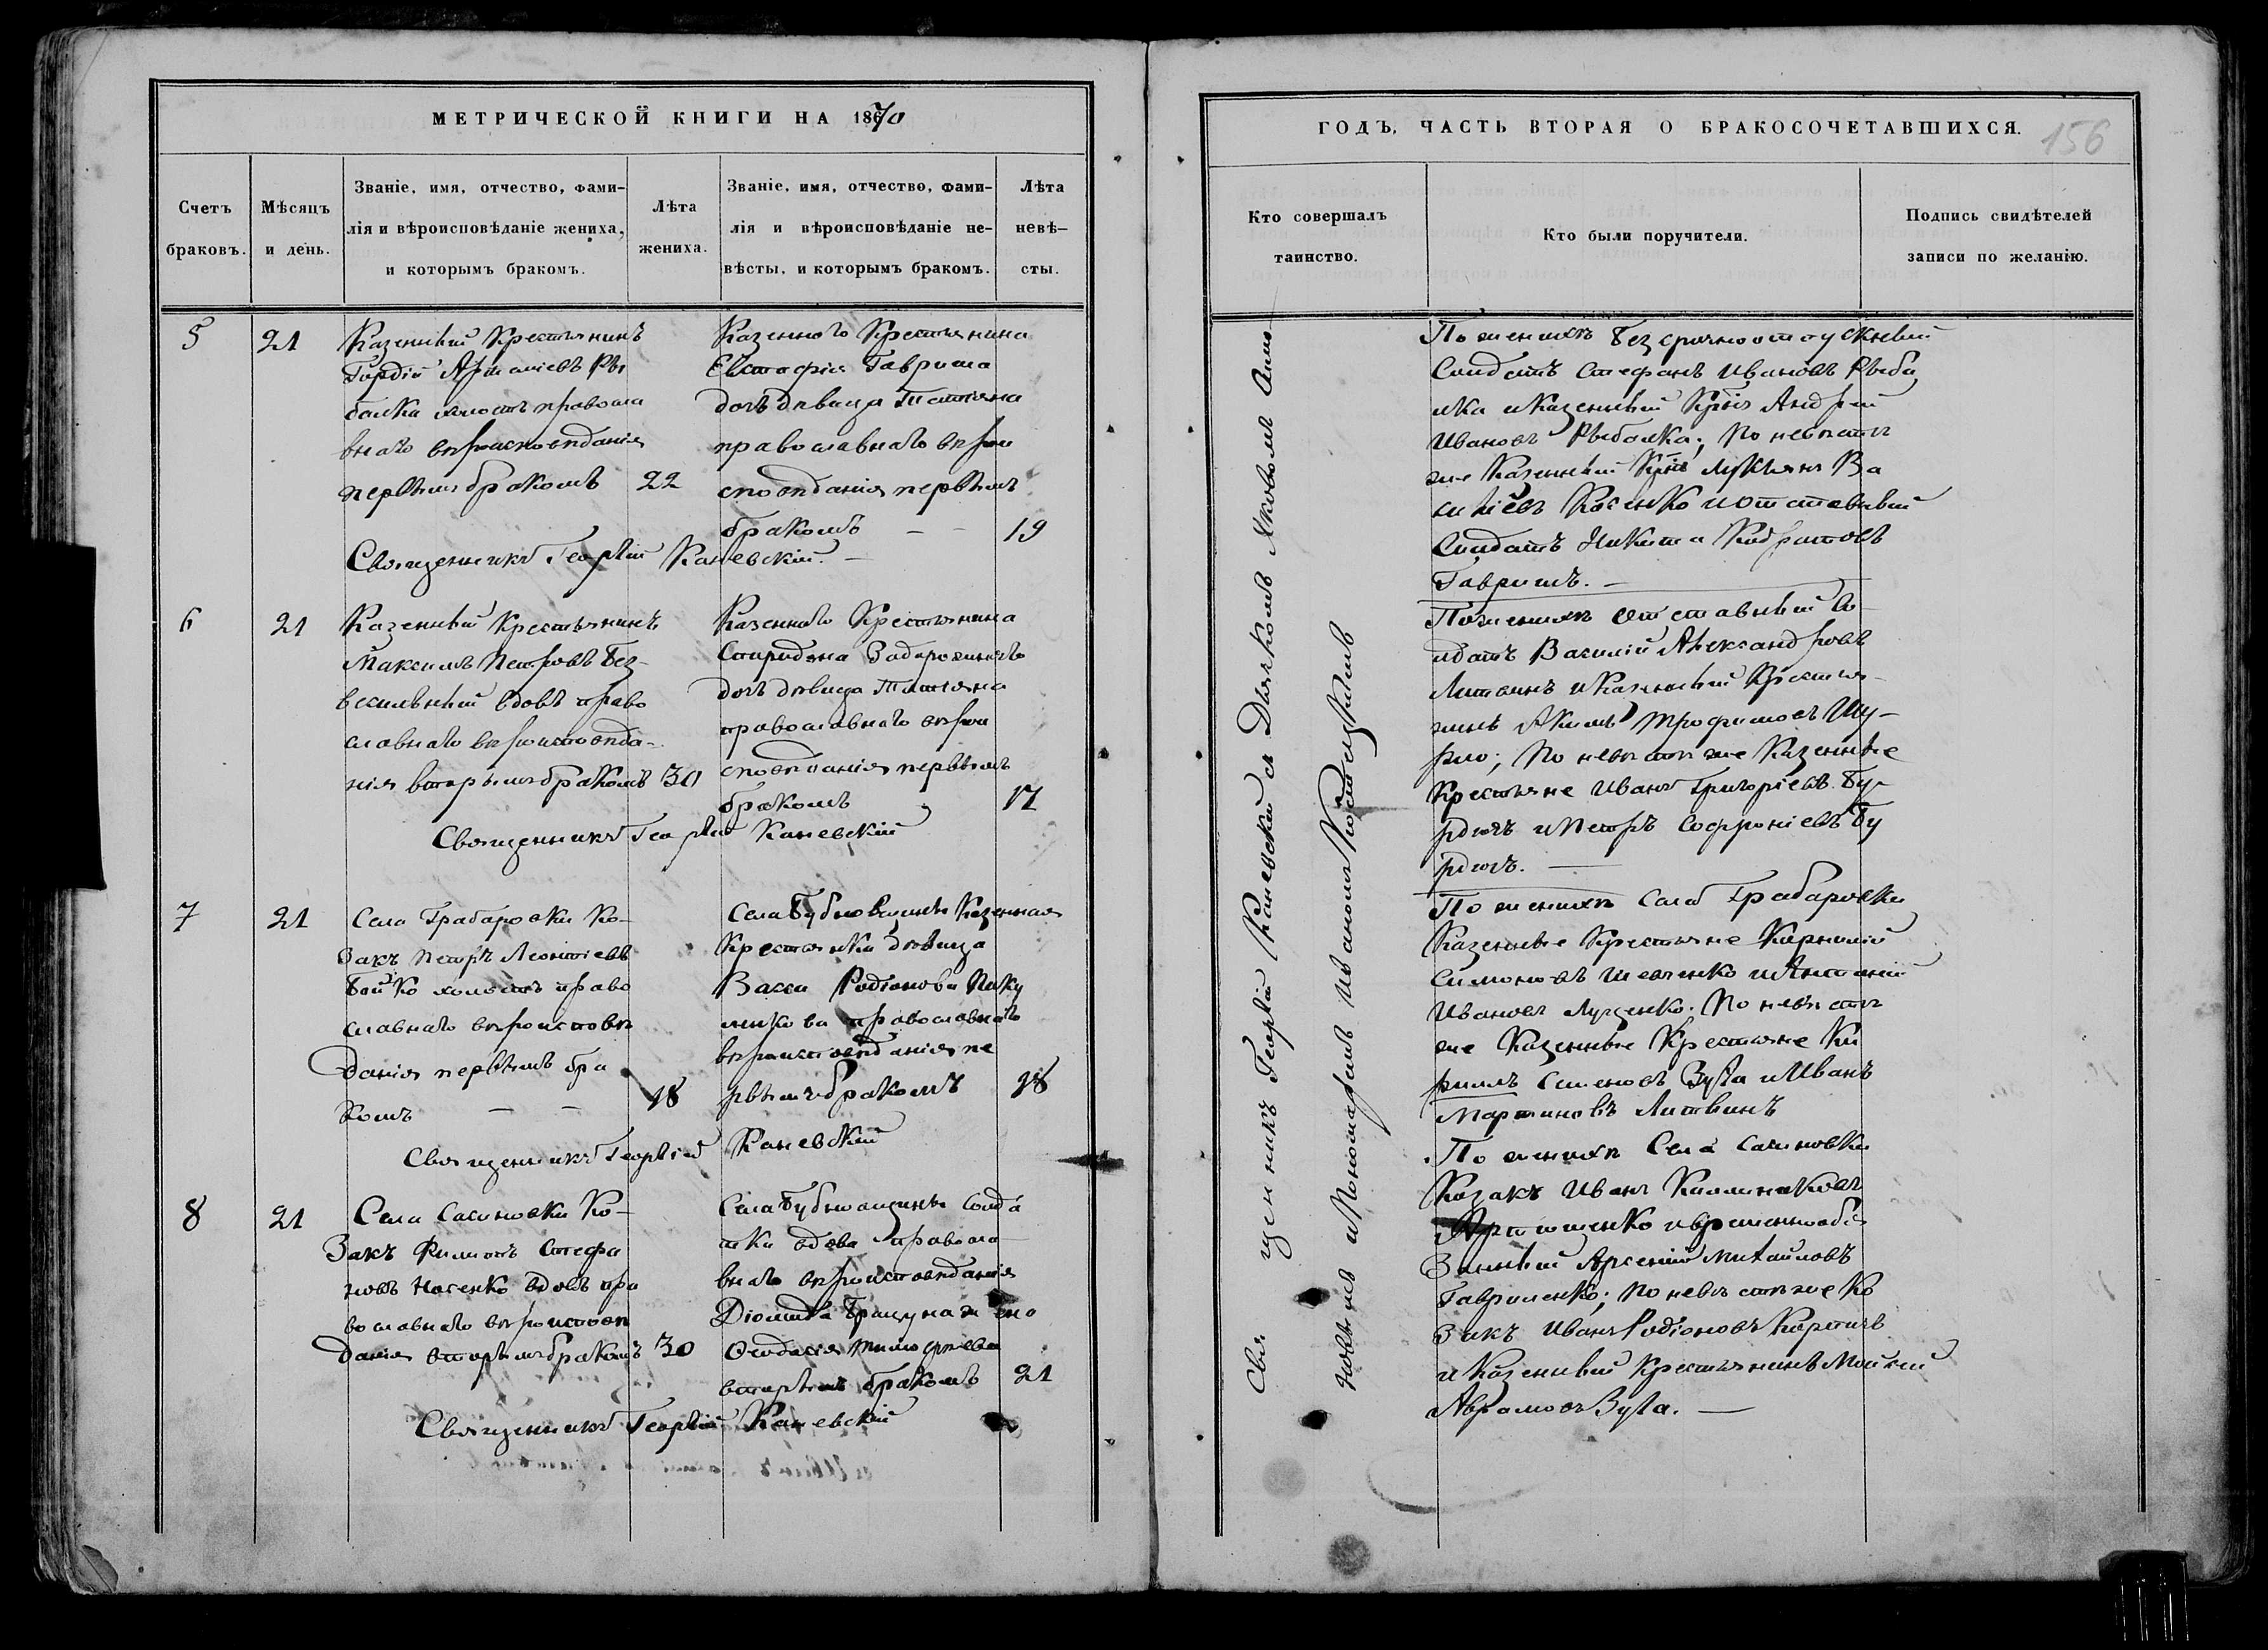 МЕТРИЧЕСКОЙ КНИГИ НА 1870
Счетъ браковъ.
Мѣсяцъ и день.
Званіе, имя, отчество, фами-
лія и вѣроисповѣданіе жениха,
и которымъ бракомъ.
Лѣта жениха.
Званіе, имя, отчество, фами-
лія и вѣроисповѣданіе не-
вѣсты, и которымъ бракомъ.
Лѣта невѣ-
сты.
5
21
Казенный Крестьянинъ
Гордій Ры
балка холостъ правосла
внаго вѣроисповѣданія
первымъ бракомъ 22
Казенного Крестьянина
Евстафія Гавриша
дочь дѣвица Татіяна
православнаго вѣрои
сповѣданія первымъ
бракомъ — — 19
Священникъ Георгій Каневскій. —
6
21
Казенный Крестьянинъ
Максимъ Петровъ Без-
весильный вдовъ право
славнаго вѣроисповѣда-
нія вторымъ бракомъ 30
Казенного Крестьянина
Спиридона Задорожнаго
дочь дѣвица Татіяна
православнаго вѣрои
сповѣданія первымъ
бракомъ 17
Священникъ Георгій Каневскій
7
21
Села Грабаровки Ко-
закъ Петръ Леонтіевъ
Бойко холостъ право
славнаго вѣроисповѣ
данія первымъ бра
комъ — — 18
Села Бубновщины Казенная
Крестьянка дѣвица
Васса Родіонова Пику
ленкова православнаго
вѣроисповѣданія пе
рвымъ бракомъ 18
Священникъ Георгій Каневскій
8
21
Села Сасиновки Ко-
закъ Филипъ Стефа
новъ Носенко вдовъ пра
вославнаго вѣроисповѣ
данія вторымъ бракомъ 30
Села Бубновщины Солда
тка вдова правосла
внаго вѣроисповѣданія
Діомида жена
Феодосія Тимофѣева
вторымъ бракомъ 21
Священникъ Георгій Каневскій
ГОДЪ, ЧАСТЬ ВТОРАЯ О БРАКОСОЧЕТАВШИХСЯ.
156
Кто совершалъ
таинство.
Кто были поручители.
Подпись свидѣтелей
записи по желанію.
Священникъ Георгій Каневскій съ Дьякомъ Яковомъ
и Пономаремъ Иваномъ
По женихѣ безсрочноотпускный
Солдатъ Стефанъ Ивановъ Рыба
лка и Казенный Андрей
Ивановъ Рыбалка; По невѣстѣ
же Казенный Лукьянъ Ва
силіевъ Косенко и отставный
Солдатъ Никита Кодратовъ
Гавришъ. —
По женихѣ отставный Со-
лдатъ Василій Александровъ
Литвинъ и Казенный Крестья-
нинъ Акимъ Трофимовъ Щу-
ръ; По невѣстѣ же Казенные
Крестьяне Иванъ Григоріевъ Бу-
рдюгъ и Петръ Софроніевъ Бу
рдюгъ. —
По женихѣ Села Грабаровки
Казенные Крестьяне Корнилій
Симоновъ Шевченко и Антоній
Ивановъ Луценко. По невѣстѣ
же Казенные Крестьяне Ки
риллъ Семеновъ Зуба и Иванъ
Мартиновъ Литвинъ
По женихѣ Села Сасиновки
Козакъ Иванъ
Артюшенко и временнообя
занный Арсеній Михайловъ
Гавриленко; По невѣстѣ же Ко
закъ Иванъ Родіоновъ
и Казенный Крестьянинъ Мойсей
Авраамовъ Зуба. —